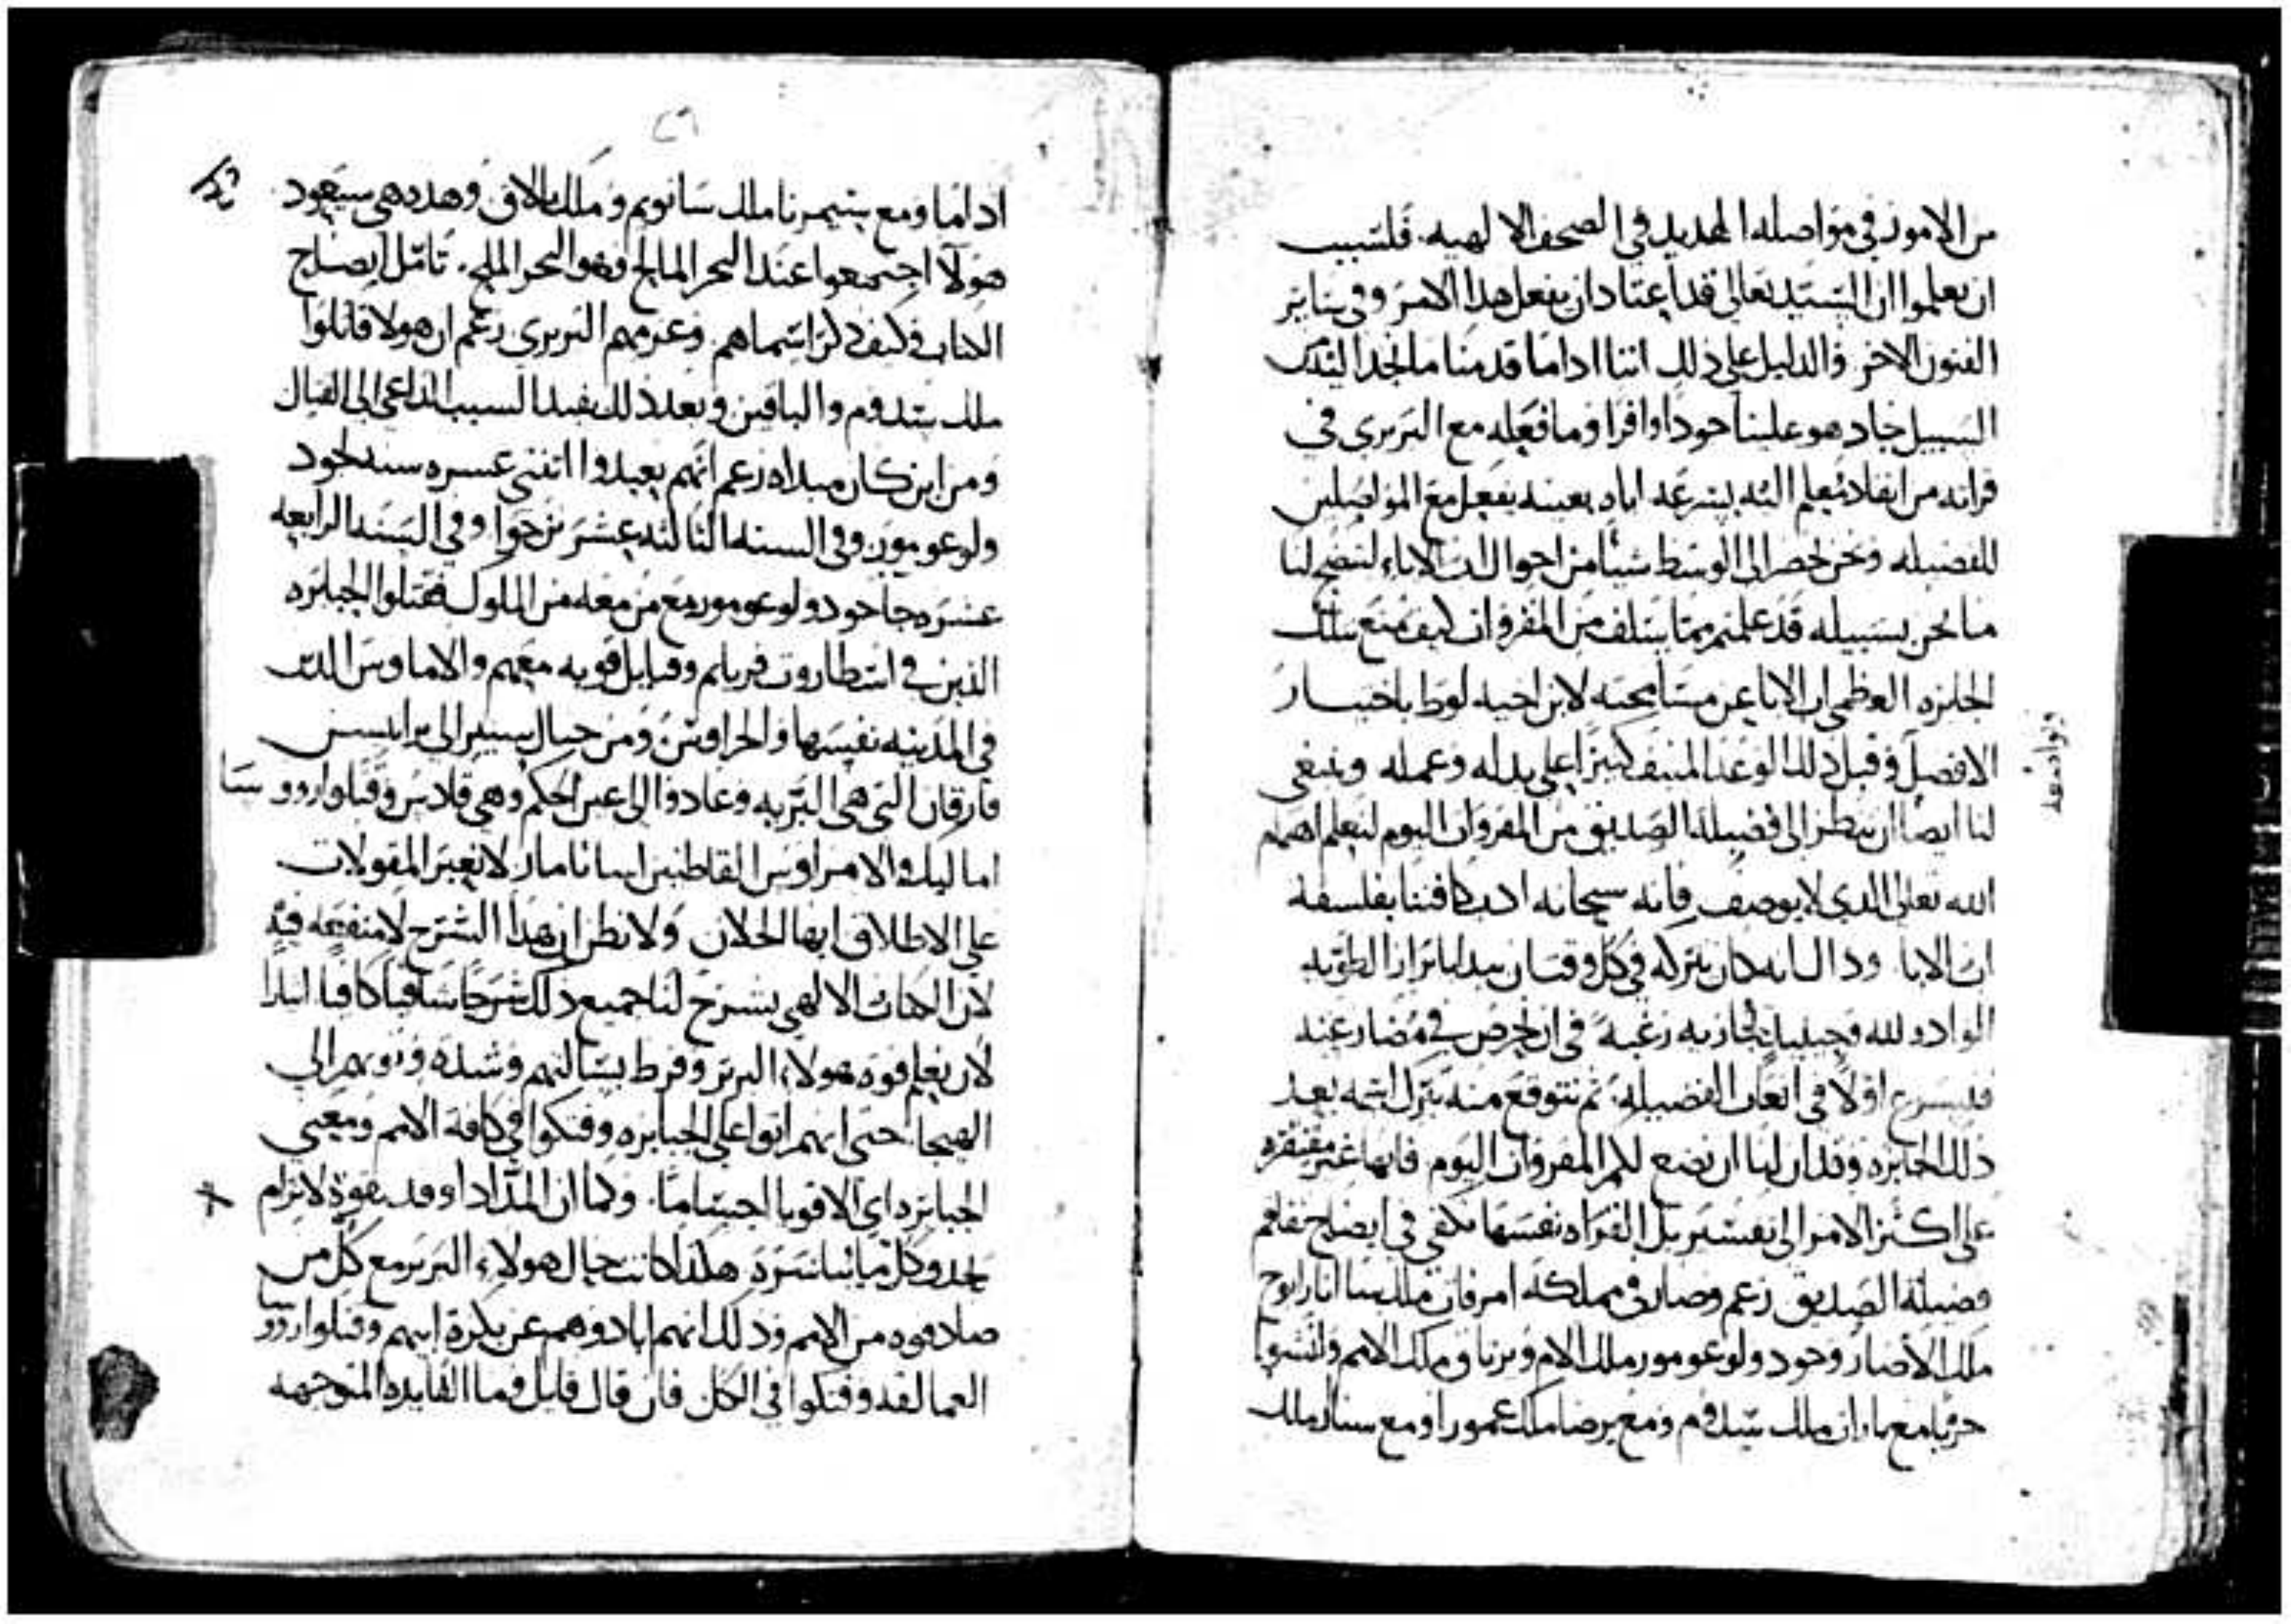 من الامور في مواصله الهديد في الصحف الالهيه. فلسبيل
ان تعلموا ان السيد تعالى قد اعتاد ان يفعل هذا الامر وفي ساير
الفنون الاخر والدليل على ذلك اننا اذا ما قدمنا ما نجد اليه
السبيل جاد هو علينا جودا وافرا وما فعله مع البربري في
قرانه من انفلا تعليم اليه بسرعه اياه بعينه يفعل مع المواصلين
للفضيله ونحن نحضر الى الوسط شيا من احوال اب الاباء ليتضح لنا
ما نحن بسبيله قد علمتم مما سلف من المقروات كيف تمتع بتلك
الجايزه العظمى اب الابا عن مسامحته لابن اخيه لوط باختيار
الافضل وقبل ذلك الوعد المنيف كبيرا على بدله وعمله وينبغي
لنا ايضا ان ننظر الى فضيلة الصديق من المقروات اليوم لنعلم اهتمام
الله تعالى الذي لا يوصف فانه سبحانه اذ يكافينا بفلسفة
اب الابا وذاك انه كان يتركه في كل وقت ان يبدا بابراز الطويه
الوادو لله وحينيذ يجازيه رغبة في ان يحرص في مضارعته
فليسرع اولا في اتعاب الفضيله ثم نتوقع منه بترك اسمه بعد
ذلك الجايزه وقد ان لنا ان نضع لكم المقروات اليوم فانها غير مفتقره
على اكثر الامر الى تفسير بل القراه نفسها تكفي في ايضاح تفاقم
فضيلة الصديق زعم وصار في مملكة امرفال ملك سناار اريوح
ملك الاصار وحود ولوعومور ملك الام وبرنا ملك الامم وانشوا
حربا مع بارا ملك سدوم ومع برضا ملك عمورا ومع سنار ملك
وتوادعه
٢٦
اداما ومع سيمرنا ملك سانويم وملك بالاق وهذه هي سيعود
هولا اجتمعوا عند البحر المالح وهو البحر الملح. تامل ايضاح
الكتاب وكيف ذكر اسماهم وعزمهم البربري زعم ان هولا قاتلوا
ملك سدوم والباقين وبعد ذلك يفيدنا السبب الداعي الى القتال
ومن اين كان مبداه زعم انهم تعبدوا اثنتي عسره سنه لحود
ولوعومور وفي السنه الثالثه عشر نزحوا وفي السنه الرابعه
عشره جا حود ولوعومور مع من معه من الملوك فقتلوا الجبابره
الذين في اسطاروت قرنايم وقبايل قويه معهم والاماوس الذين
في المدينه نفسها والحراويين ومن جبال سيعر الى ترابيس
فارقان التي هي البريه وعادوا الى عين الحكم وهي قلاس وقتلوا روو سا
اماليك والامراوس القاطنين اسانا مار لا نعبر المقولات
على الاطلاق ايها الخلان ولا نظن ان هذا الشرح لا منفعه فيه
لان الكتاب الالهي يشرح لنا جميع ذلك شرحا شافيا كافيا ليلا
لان نعلم قوه هولاء البربر وفرط بسالتهم وشده وثوبهم الى
الهيجا حتى انهم اتوا على الجبابره وفتكوا في كافة الامم ومعنى
الجبابره اي الاقويا اجساما. وكما ان المد اذا وفد بقوة لا ترام
يحذو كل ما ياسره هكذا كانت حال هولاء البربر مع كل من
صادفوه من الامم وذلك انهم ابادوهم عن بكرة ابيهم وقتلوا روو سا
العمالقه وفتكوا في الكل فان قال قايل وما الفايده المتوجهه